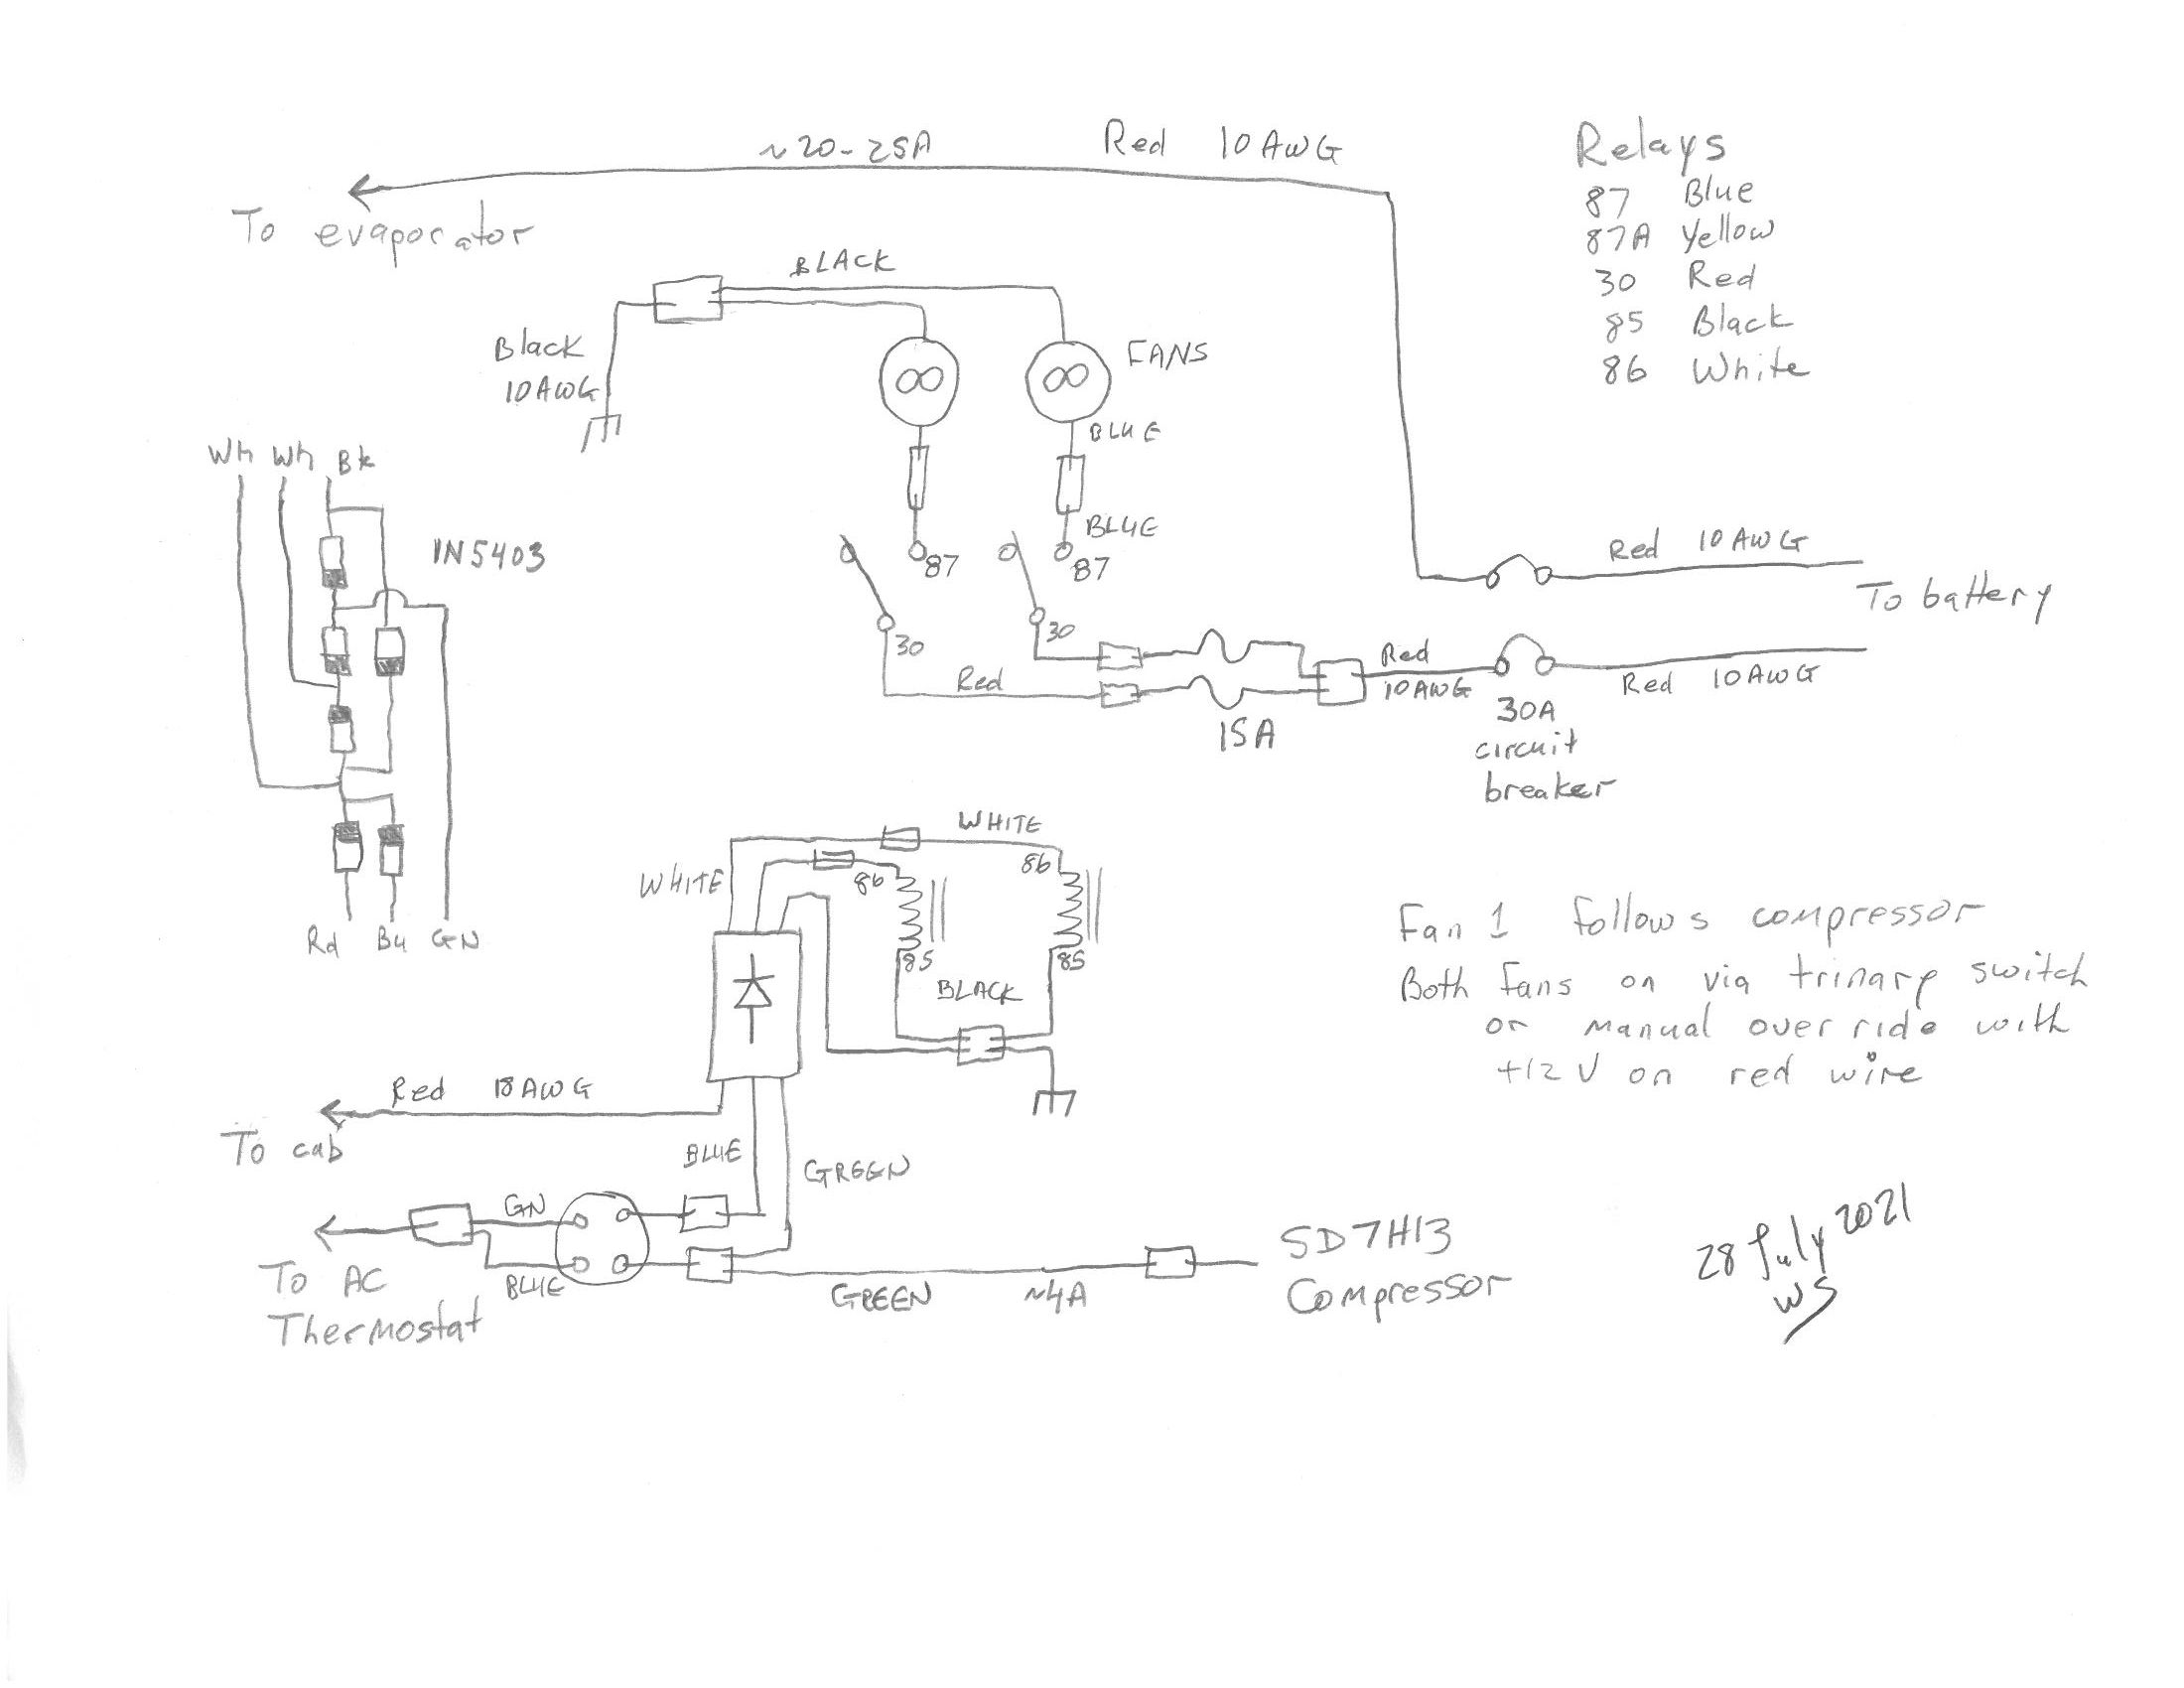 ~20-25A
Red 10AWG
To evaporator
Relays
87 Blue
87A Yellow
30 Red
85 Black
86 White
BLACK
Black
10AWG
FANS
BLUE
BLUE
87
87
30
30
Wh Wh Bk
IN5403
Rd Bu GN
Red 10AWG
To battery
Red
10AWG
Red 10AWG
Red
15A
30A
circuit
breaker
WHITE
WHITE
86
86
85
85
BLACK
Fan 1 follows compressor
Both fans on via trinary switch
or manual override with
+12V on red wire
Red 18AWG
To cab
BLUE
GREEN
GN
BLUE
To AC
Thermostat
GREEN ~4A
SD7H13
Compressor
28 July 2021
WS